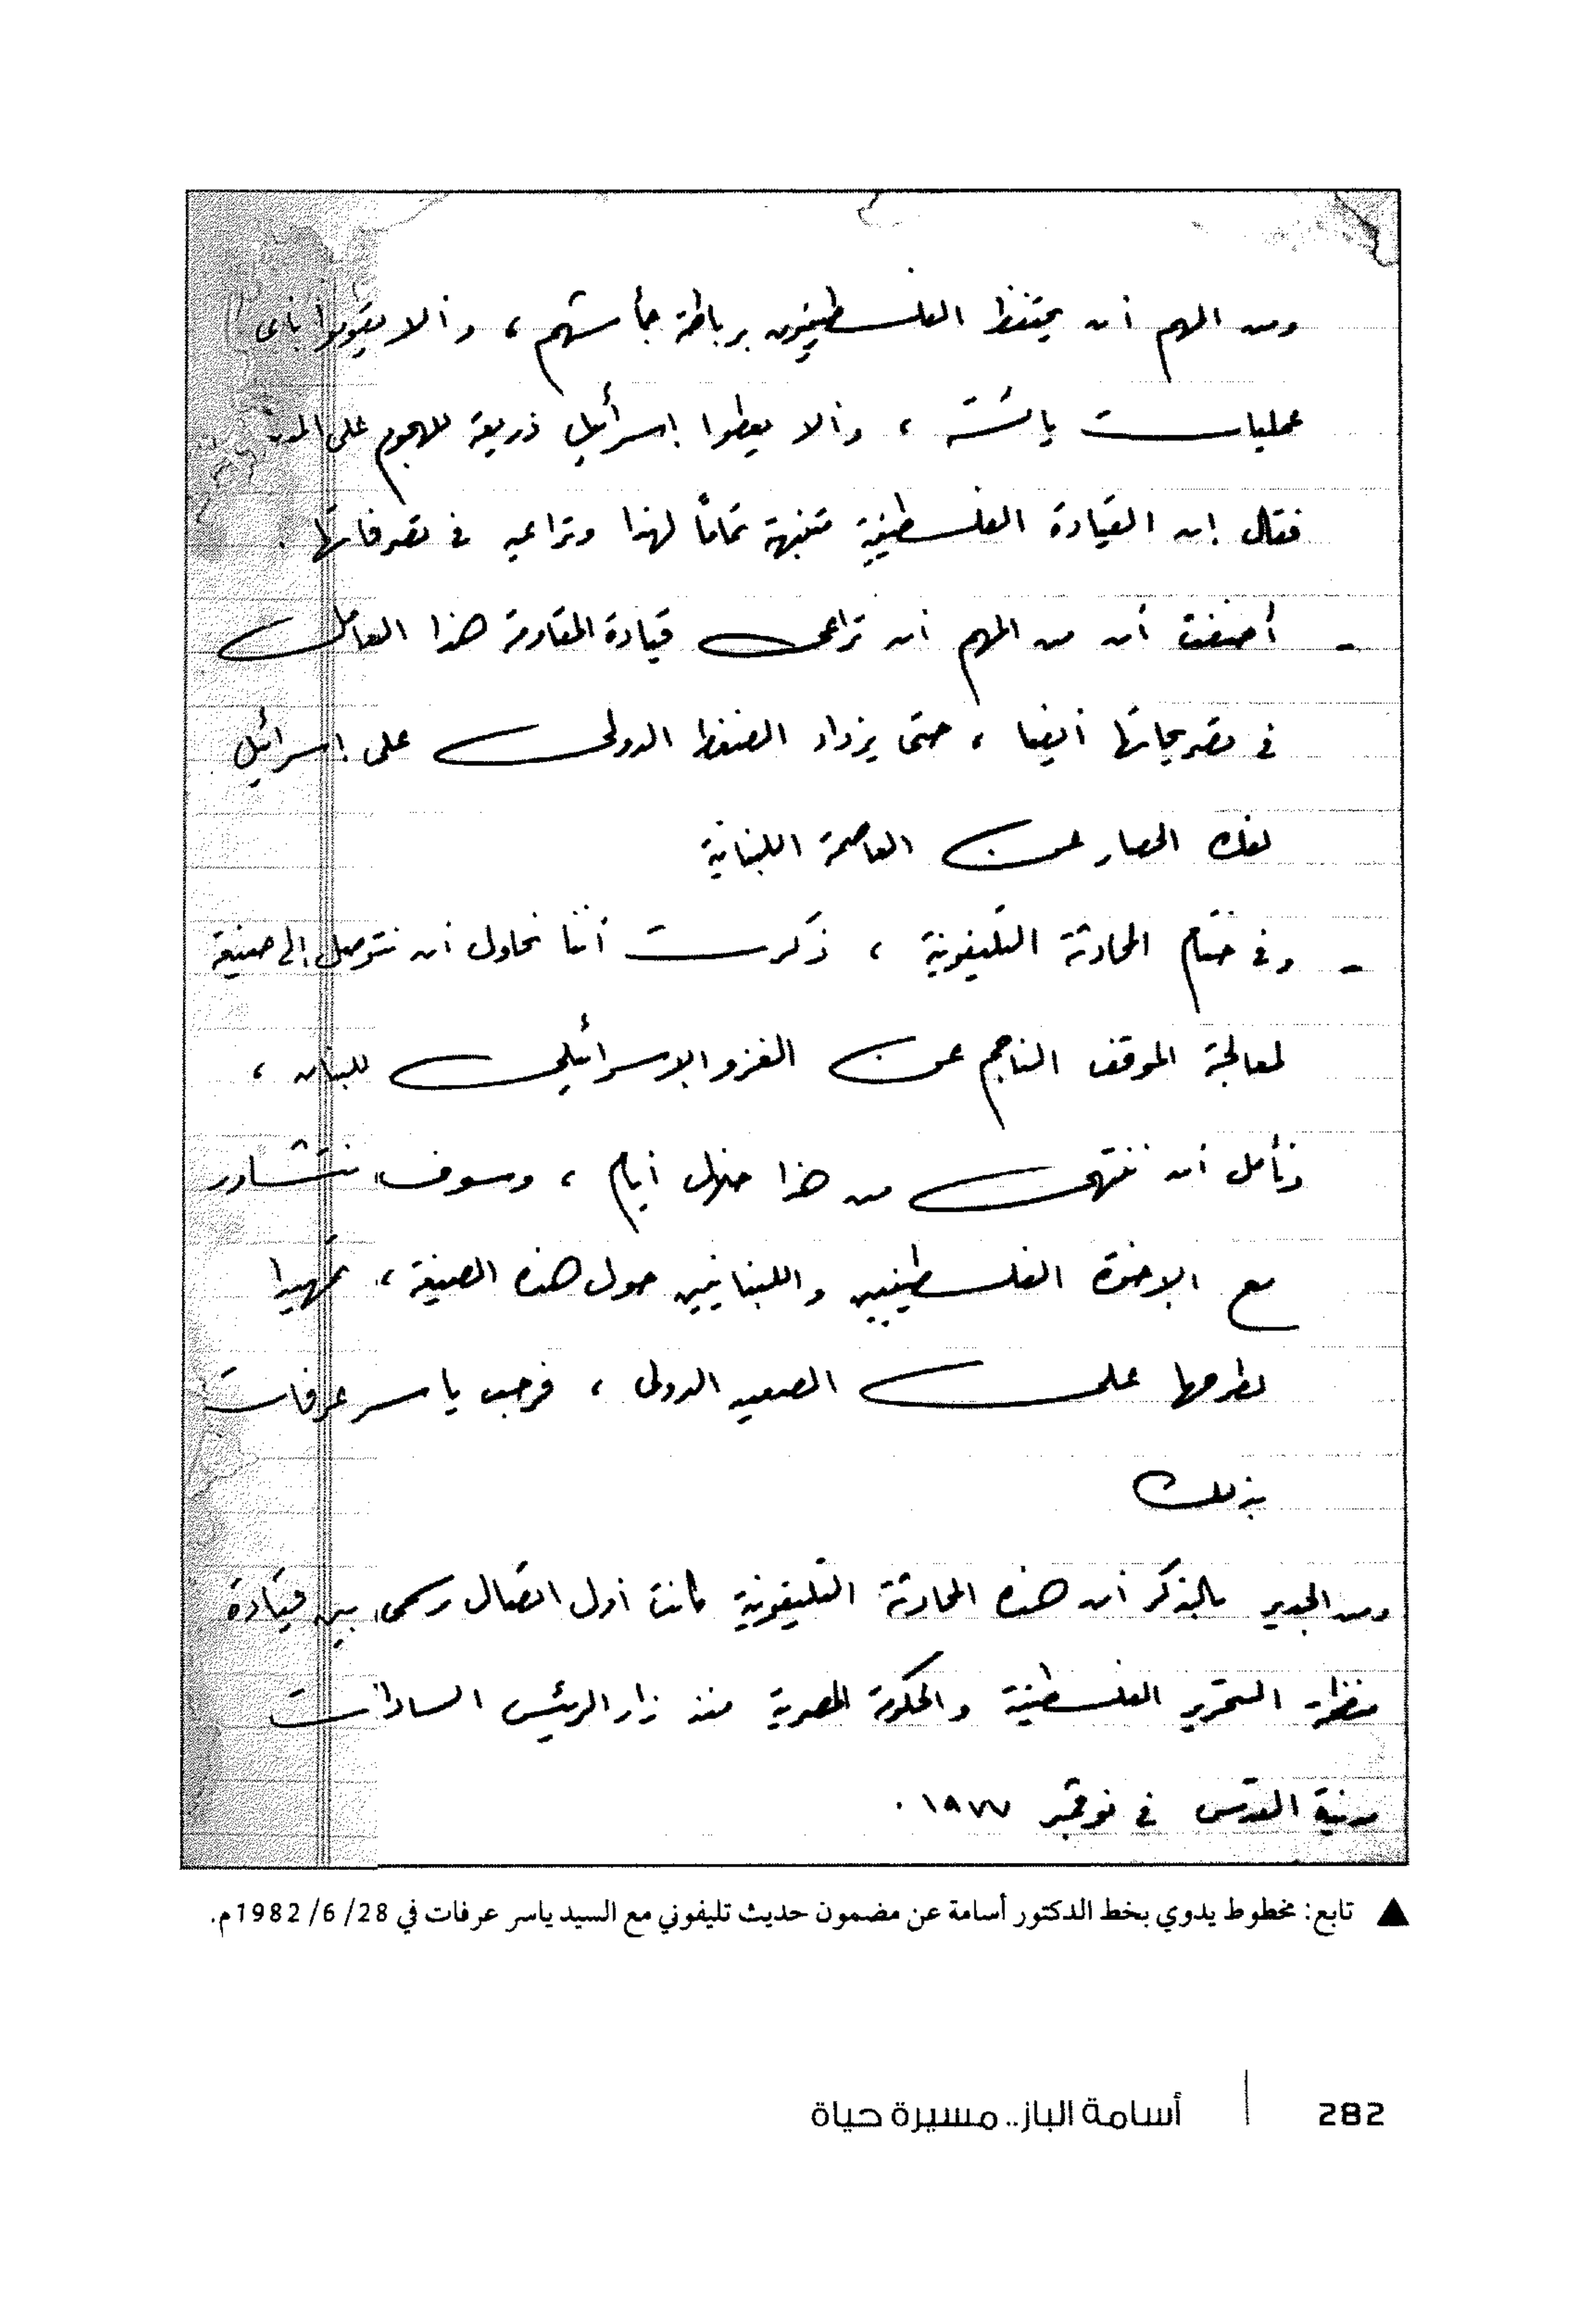 ومن المهم أن يحتفظ الفلسطينيون برباطة جأشهم ، وألا يقوموا بأى
عمليات يائسة ، وألا يعطوا إسرائيل ذريعة للهجوم على
فقال إن القيادة الفلسطينية متنبهة تماماً لهذا وتراعيه فى تصرفاتها .
- أضفت أن من المهم أن تراعى قيادة المقاومة هذا العامل
فى تصريحاتها أيضا ، حتى يزداد الضغط الدولى على إسرائيل
لفك الحصار عن العاصمة اللبنانية
- وفى ختام المحادثة التليفونية ، ذكرت أننا نحاول أن نتوصل إلى صيغة
لمعالجة الموقف الناجم عن الغزو الإسرائيلى للبنان ،
ونأمل أن ننتهى من هذا خلال أيام ، وسوف نتشاور
مع الإخوة الفلسطينيين واللبنانيين حول هذه الصيغة ، تمهيدا
لطرحها على الصعيد الدولى ، فرحب ياسر عرفات
بذلك
ومن الجدير بالذكر أن هذه المحادثة التليفونية كانت أول اتصال رسمى بين قيادة
منظمة التحرير الفلسطينية والحكومة المصرية منذ زار الرئيس السادات
مدينة القدس فى نوفمبر ١٩٧٧ .
▲ تابع: مخطوط يدوي بخط الدكتور أسامة عن مضمون حديث تليفوني مع السيد ياسر عرفات في 28/ 6/ 1982م.
282 | أسامة الباز.. مسيرة حياة